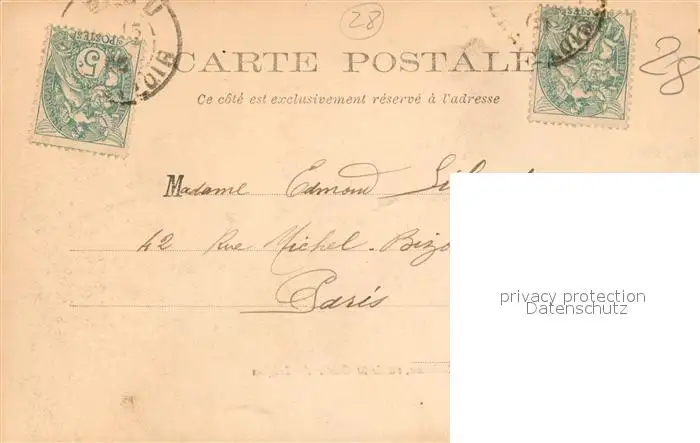 28
28
5
POSTES
CARTE POSTALE
Ce côté est exclusivement réservé à l'adresse
Madame Edmond
42 Rue Michel-Bizo
Paris
privacy protection
Datenschutz